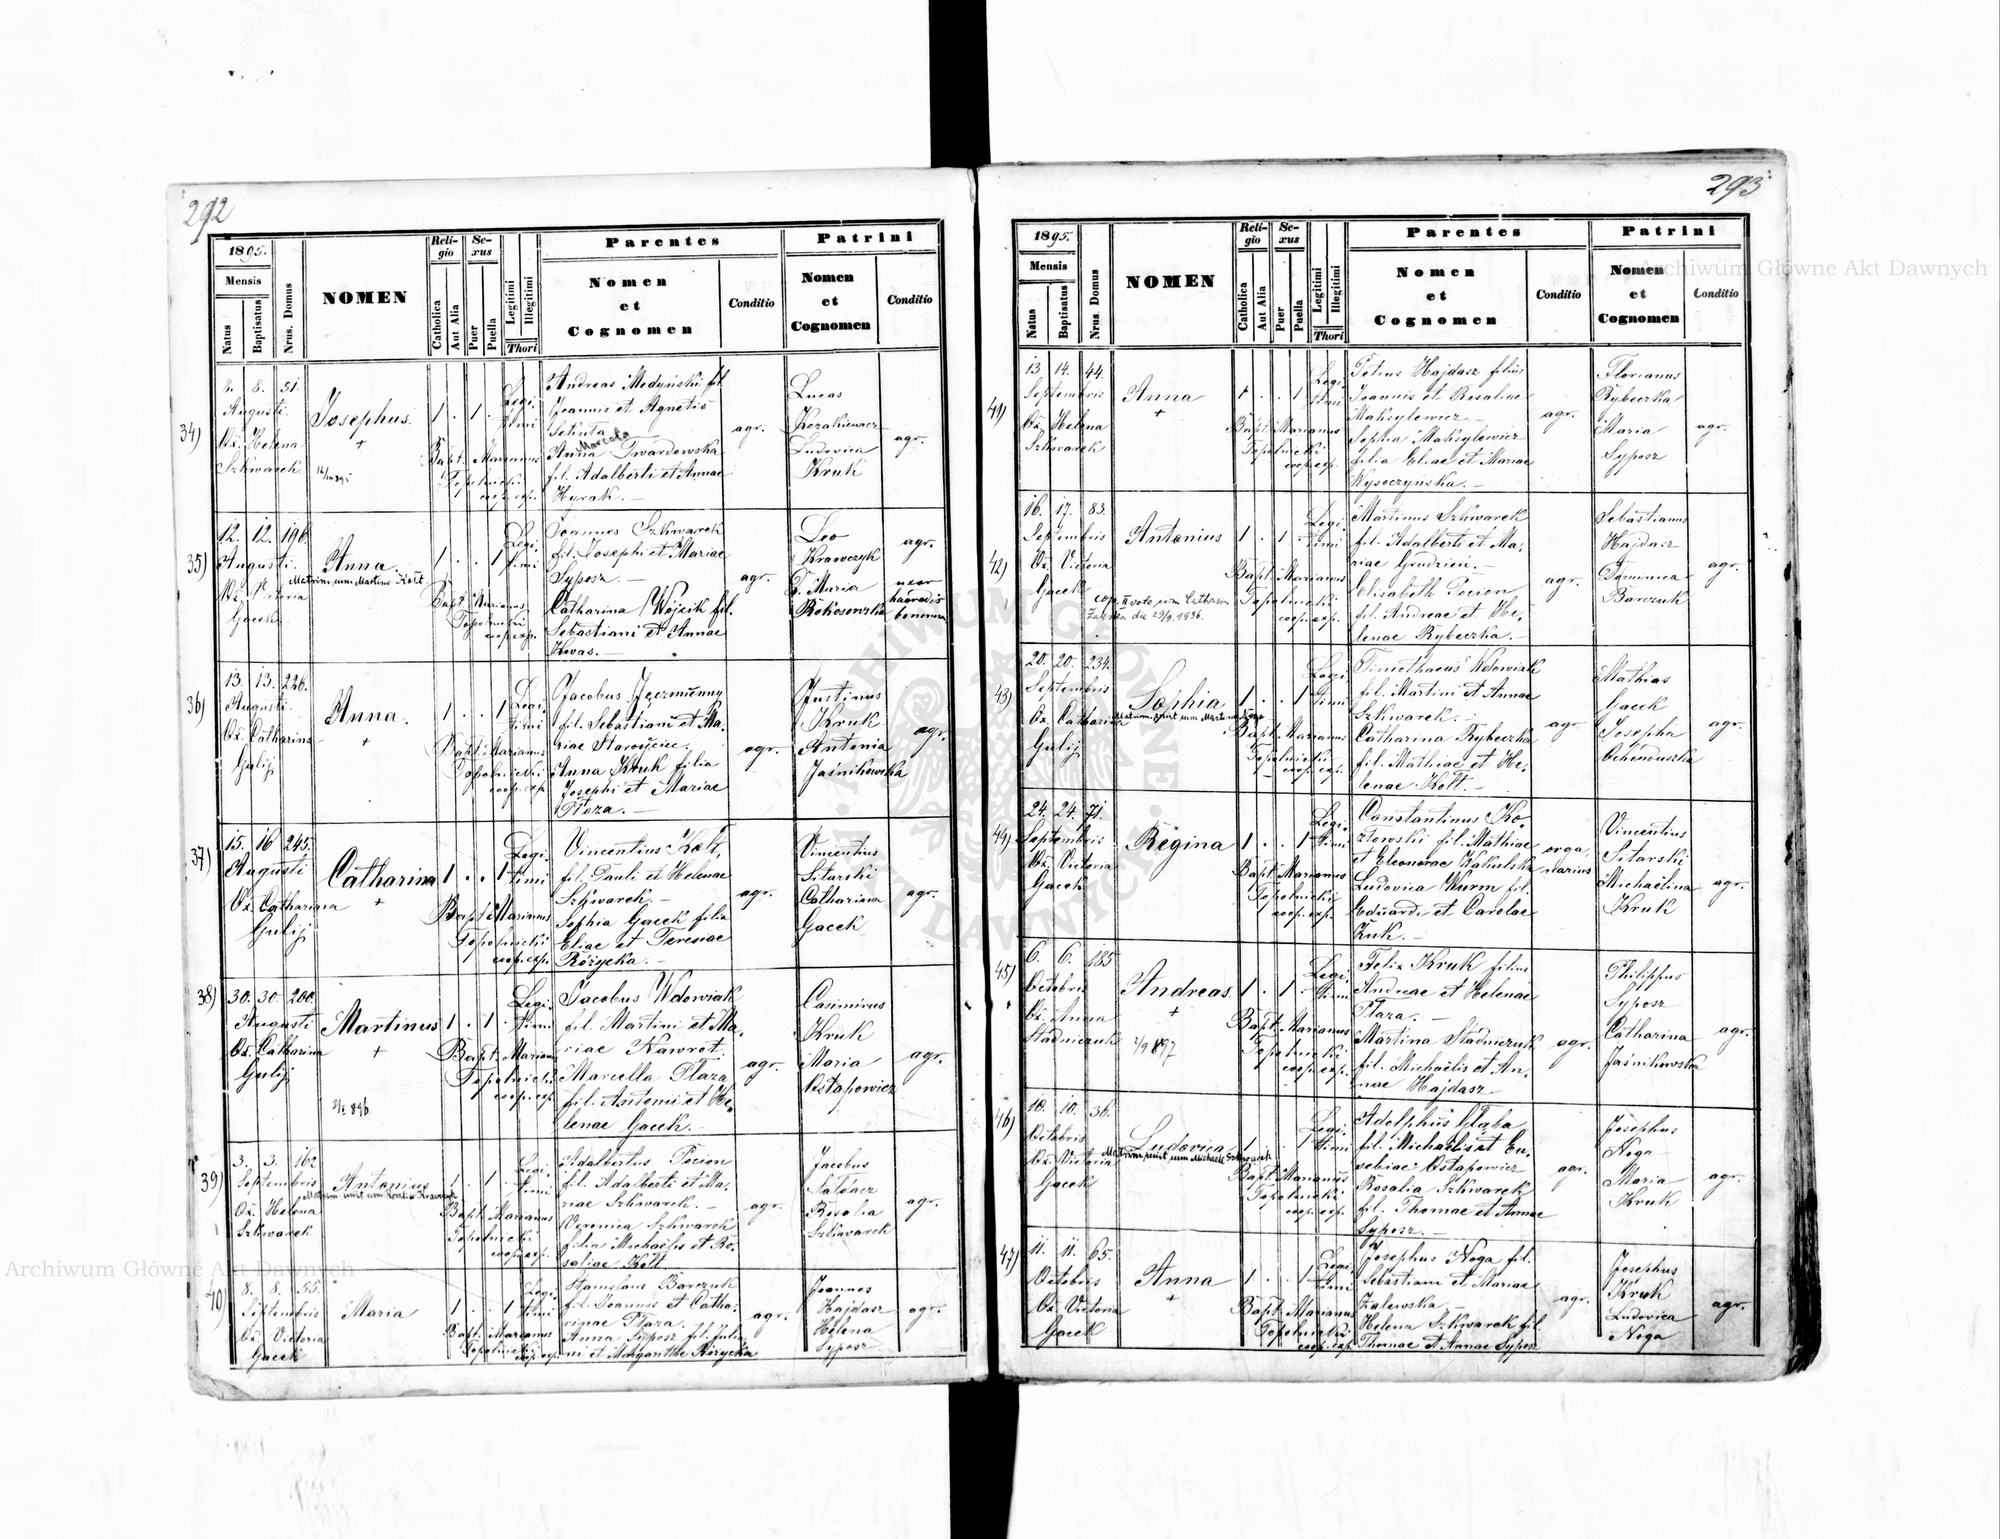 292
1895.
Mensis
Natus
Baptisatus
Nrus. Domus
NOMEN
Reli-
gio
Catholica
Aut Alia
Se-
xus
Puer
Puella
Legitimi
Illegitimi
Thori
Parentes
Nomen
et
Cognomen
Conditio
Patrini
Nomen
et
Cognomen
Conditio
34)
8. 8. 51.
Augusti
Ob. Helena
Szkwarek
Josephus
+
1 . 1 .
Legi,
timi
Bapt. Marianus
Topolnicki
coop. exp.
Andreas Medyński fil.
Joannis et Agnetis
Sekuta
Marcela
Anna Twardowska
fil. Adalberti et Annae
Hyrak. —
agr.
Lucas
Kozakiewicz
Ludovica
Kruk
agr.
35)
12. 12. 196.
Augusti.
Ob. Victoria
Gacek
Anna
Matrim. cum Martino Kołt
1 . . 1
Legi,
timi
Bapt. Marianus
Topolnicki
coop. exp.
Joannes Szkwarek
fil. Josephi et Mariae
Syposz. —
Catharina Wójcik fil.
Sebastiani et Annae
Kwas. —
agr.
Leo
Krawczyk
D. Maria
Rokosowska
agr.
uxor
haeredis
bonorum
36)
13. 13. 226.
Augusti
Ob. Catharina
Gulij
Anna.
+
1 . . 1
Legi,
timi
Bapt. Marianus
Topolnicki
coop. exp.
Jacobus Jęczmienny
fil. Sebastiani et Ma,
riae Starościec.
Anna Kruk filia
Josephi et Mariae
Płaza. —
agr.
Justinus
Kruk
Antonia
Jaśnikowska
agr.
37)
15. 16. 245.
Augusti
Ob. Catharina
Gulij
Catharina
+
1 . . 1
Legi,
timi
Bapt. Marianus
Topolnicki
coop. exp.
Vincentius Kołt,
fil. Pauli et Helenae
Szkwarek. —
Sophia Gacek filia
Eliae et Teresiae
Różycka. —
agr.
Vincentius
Sitarski
Catharina
Gacek
agr.
38)
30. 30. 200.
Augusti
Ob. Catharina
Gulij
Martinus
+
1 . 1 .
Legi,
timi
Bapt. Marianus
Topolnicki
coop. exp.
Jacobus Wdowiak
fil. Martini et Ma,
riae Nawrot.
Marcella Płaza
fil. Antonii et He,
lenae Gacek. —
agr.
Casimirus
Kruk
Maria
Ostapowicz
agr.
39)
3. 3. 162
Septembris
Ob. Helena
Szkwarek
Antonius
1 . 1 .
Legi,
timi
Bapt. Marianus
Topolnicki
coop. exp.
Adalbertus Pocion
fil. Adalberti et Ma,
riae Szkwarek. —
Veronica Szkwarek
filia Michaëlis et Ro,
saliae Kołt.
agr.
Jacobus
Rosalia
Szkwarek
agr.
40)
8. 8. 55.
Septembris
Ob. Victoria
Gacek
Maria
1 . . 1
Legi,
timi
Bapt. Marianus
Topolnicki
coop. exp.
Stanislaus Barczuk
fil. Joannis et Catha,
rinae Płaza.
Anna Syposz fil. Julia,
ni et Margarithae Różycka
agr.
Joannes
Hajdasz
Helena
Syposz
agr.
293
1895.
Mensis
Natus
Baptisatus
Nrus. Domus
NOMEN
Reli-
gio
Catholica
Aut Alia
Se-
xus
Puer
Puella
Legitimi
Illegitimi
Thori
Parentes
Nomen
et
Cognomen
Conditio
Patrini
Nomen
et
Cognomen
Conditio
41)
13. 14. 44.
Septembris
Ob. Helena
Szkwarek
Anna
+
1 . . 1
Legi,
timi
Bapt. Marianus
Topolnicki
coop. exp.
Petrus Hajdasz filius
Joannis et Rosaliae
Maksylewicz —
Sophia Maksylewicz
filia Eliae et Mariae
Wysoczyńska. —
agr.
Florianus
Rybeczka
Maria
Syposz
agr.
42)
16. 17. 83.
Septembris
Ob. Victoria
Gacek
Antonius
cop. II voto cum Catharina
Zaleska die 29/9. 1936.
1 . 1 .
Legi,
timi
Bapt. Marianus
Topolnicki
coop. exp.
Martinus Szkwarek
fil. Adalberti et Ma,
riae Grudzien. —
Elisabeth Pocion
fil. Andreae et He,
lenae Rybeczka. —
agr.
Sebastianus
Hajdasz
Dominica
Barczuk
agr.
43)
20. 20. 234.
Septembris
Ob. Catharina
Gulij
Sophia
Matrim. iniit cum Martino Noga
1 . . 1
Legi,
timi
Bapt. Marianus
Topolnicki
coop. exp.
Timothaeus Wdowiak
fil. Martini et Annae
Szkwarek. —
Catharina Rybeczka
fil. Mathiae et He,
lenae Kołt. —
agr.
Mathias
Gacek
Josepha
Ochenduszka
agr.
44)
24. 24. 71.
Septembris
Ob. Victoria
Gacek
Regina
1 . . 1
Legi,
timi
Bapt. Marianus
Topolnicki
coop. exp.
Constantinus Ko,
złowski fil. Mathiae
et Eleonorae Kakulska
Ludovica Wurm fil.
Eduardi et Carolae
Żuk. —
orga,
narius
Vincentius
Sitarski
Michaëlina
Kruk
agr.
45)
6. 6. 185
Octobris
Ob. Anna
Stadniczuk
Andreas.
+
1/9 897
1 . 1 .
Legi,
timi
Bapt. Marianus
Topolnicki
coop. exp.
Felix Kruk filius
Andreae et Helenae
Płaza. —
Martina Stadniczuk
fil. Michaëlis et An,
nae Hajdasz —
agr.
Philippus
Syposz
Catharina
Jaśnikowska
agr.
46)
10. 10. 36.
Octobris
Ob. Victoria
Gacek
Ludovica
Matrim. iniit cum Michaele Szkwarek
1 . . 1
Legi,
timi
Bapt. Marianus
Topolnicki
coop. exp.
Adolphus Głąba
fil. Michaëlis et Eu,
sebiae Ostapowicz
Rosalia Szkwarek
fil. Thomae et Annae
Syposz —
agr.
Josephus
Noga
Maria
Kruk
agr.
47)
11. 11. 65.
Octobris
Ob. Victoria
Gacek
Anna
+
1 . . 1
Legi,
timi
Bapt. Marianus
Topolnicki
coop. exp.
Josephus Noga fil.
Sebastiani et Mariae
Zalewska —
Helena Szkwarek fil.
Thomae et Annae Syposz
agr.
Josephus
Kruk
Ludovica
Noga
agr.
Archiwum Główne Akt Dawnych
Archiwum Główne Akt Dawnych
ARCHIWUM GŁÓWNE AKT DAWNYCH